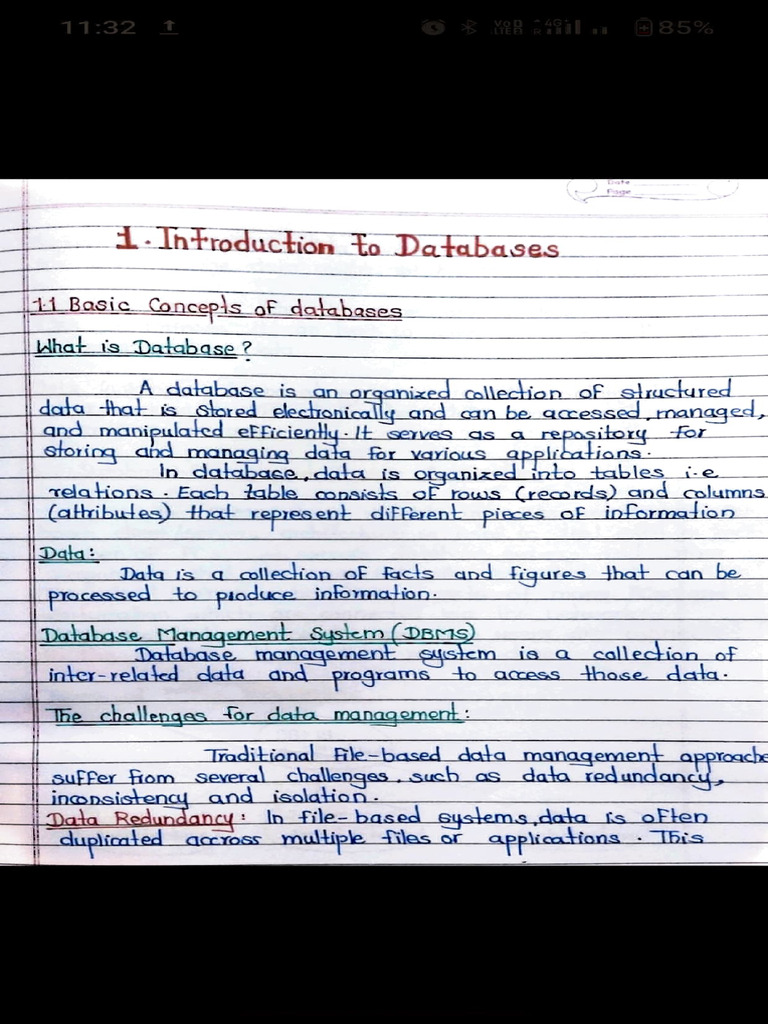 11:32
Vo LTE 4G R 85%
Date
Page
1. Introduction to Databases
1.1 Basic Concepts of databases
What is Database?
A database is an organized collection of structured
data that is stored electronically and can be accessed, managed,
and manipulated efficiently. It serves as a repository for
storing and managing data for various applications.
In database, data is organized into tables i.e
relations. Each table consists of rows (records) and columns
(attributes) that represent different pieces of information
Data:
Data is a collection of facts and figures that can be
processed to produce information.
Database Management System (DBMS)
Database management system is a collection of
inter-related data and programs to access those data.
The challenges for data management:
Traditional file-based data management approache
suffer from several challenges, such as data redundancy,
inconsistency and isolation.
Data Redundancy: In file-based systems, data is often
duplicated accross multiple files or applications. This